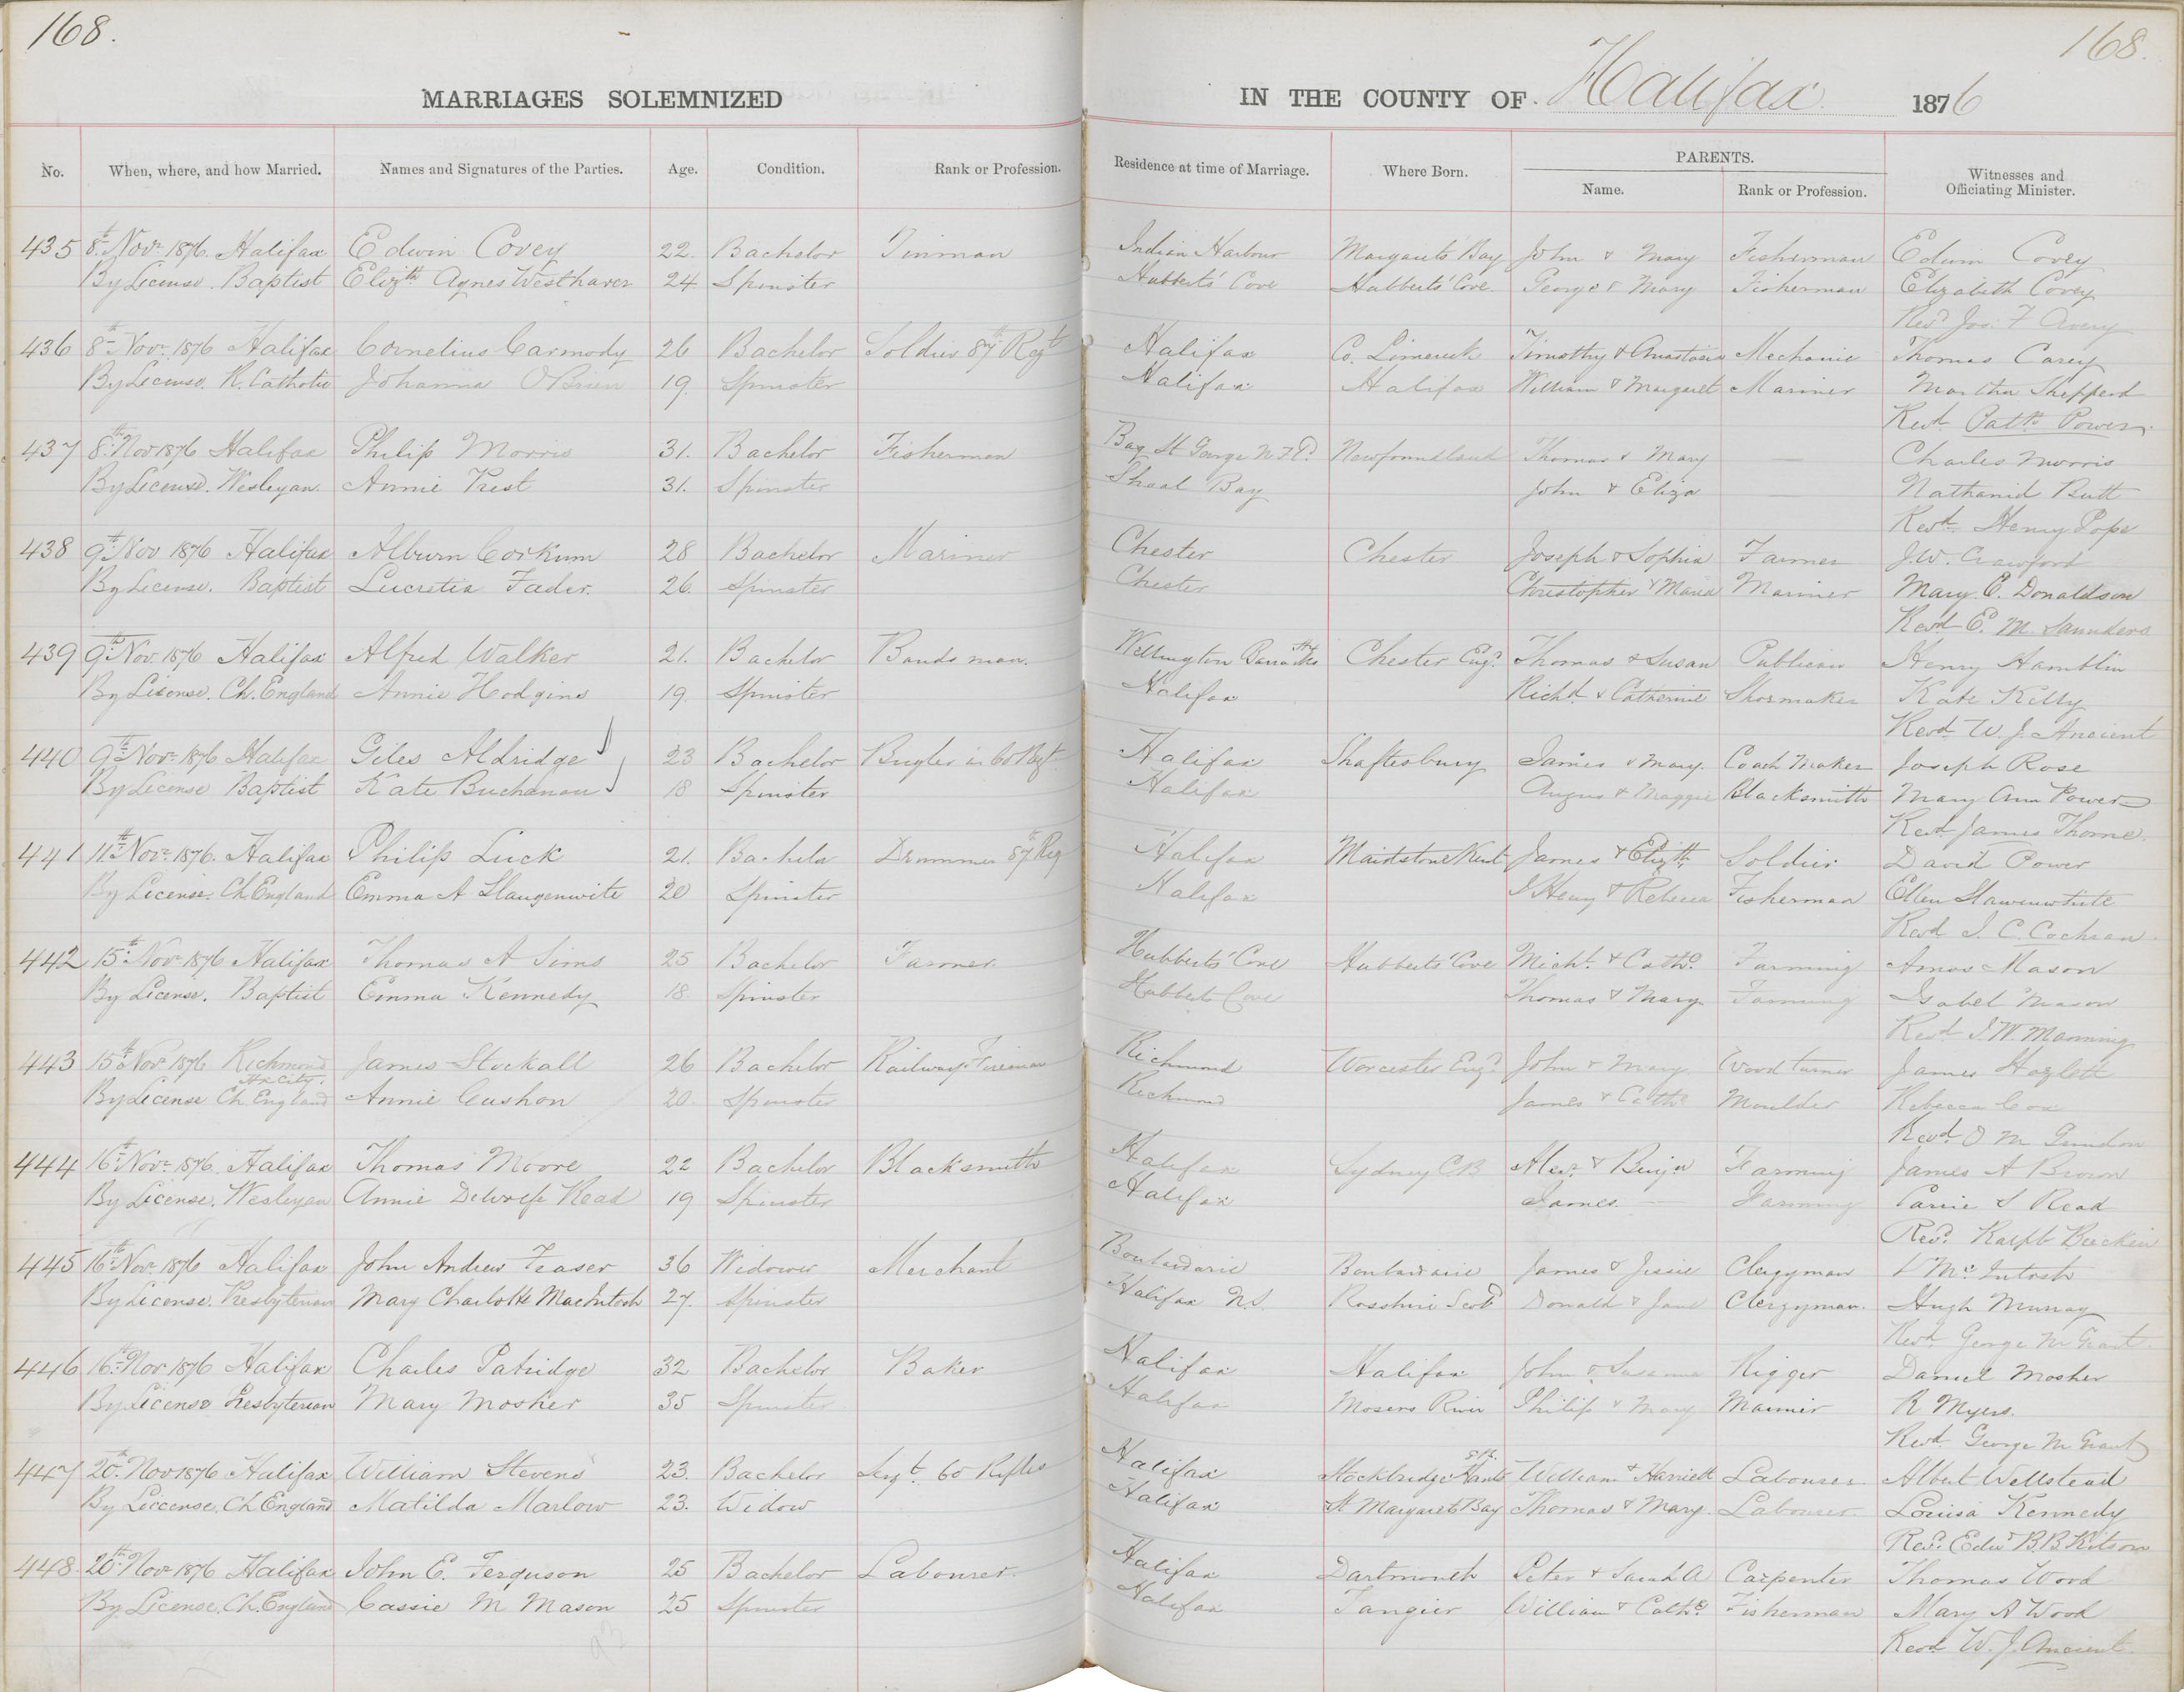 168.
168.
MARRIAGES SOLEMNIZED IN THE COUNTY OF Halifax 1876
No. When, where, and how Married. Names and Signatures of the Parties. Age. Condition. Rank or Profession. Residence at time of Marriage. Where Born. PARENTS. Name. Rank or Profession. Witnesses and Officiating Minister.
435 8th Novr 1876 Halifax Edwin Covey 22. Bachelor Tinman Indian Harbour Margarets Bay John & Mary Fisherman Edwin Covey
By License. Baptist Elizth Agnes Westhaver 24 Spinster Hubberts' Cove Hubberts' Cove. George & Mary Fisherman Elizabeth Covey
Revd Jas. F Avery
436 8th Novr 1876 Halifax Cornelius Carmody 26 Bachelor Soldier 87th Regt Halifax Co. Limerick Timothy & Anastasia Mechanic Thomas Carey
By License. R. Catholic Johanna O'Brien 19. Spinster Halifax Halifax William & Margaret Mariner Martha Shepperd
Revd Patk Power.
437 8th Nov 1876 Halifax Philip Morris 31. Bachelor Fisherman Bay St George N.F.D. Newfoundland Thomas & Mary — Charles Morris
By License. Wesleyan. Annie Prest 31. Spinster Shoal Bay John & Eliza — Nathaniel Butt
Revd Henry Pope
438 9th Nov 1876 Halifax Alburn Corkum 28 Bachelor Mariner Chester Chester Joseph & Sophia Farmer J.W. Crawford
By License. Baptist Lucretia Fader. 26. Spinster Chester Christopher & Maria Mariner Mary. E. Donaldson
Revd E. M. Saunders
439 9th Nov. 1876 Halifax Alfred Walker 21. Bachelor Bandsman. Wellington Barracks Hx Chester Engd. Thomas & Susan Publican Henry Hamblin
By License. Ch. England Annie Hodgins 19. Spinster Halifax Richd. & Catherine Shoemaker Kate Kelly
Revd W. J. Ancient
440 9th Novr 1876 Halifax Giles Aldridge 23 Bachelor Bugler in 60 Regt Halifax Shaftesbury James & Mary. Coach Maker Joseph Rose
By License Baptist Kate Buchanan 18 Spinster Halifax Angus & Maggie Blacksmith Mary Ann Power
Revd James Thorne.
441 11th Novr 1876. Halifax Philip Luck 21. Bachelor Drummer 87th Reg Halifax Maidstone Kent James & Elizth Soldier David Power
By License. Ch England Emma A Slaugenwite 20 Spinster Halifax Henry & Rebecca Fisherman Ellen Slawenwhite
Revd J. C. Cochran.
442 15th Novr 1876 Halifax Thomas A Sims 25 Bachelor Farmer. Hubberts' Cove Hubberts' Cove Michl. & Cathe. Farming Amos Mason
By License. Baptist Emma Kennedy 18. Spinster Hubberts Cove Thomas & Mary. Farming Isabel Mason
Revd J. W. Manning
443 15th Novr 1876 Richmond James Stockall 26 Bachelor Railway Fireman Richmond Worcester Engd. John & Mary Wood turner James Hazlett
Hx City.
By License Ch England Annie Cushon 20. Spinster Richmond James & Cathe Moulder Rebecca Cox
Revd O M Grindon
444 16th Novr 1876. Halifax Thomas Moore 22 Bachelor Blacksmith Halifax Sydney C.B. Alexr & Benja Farming James A Brown
By License. Wesleyan Annie DeWolfe Read 19 Spinster Halifax James — Farming Carrie S Read
Revd. Ralph Brecken
445 16th Nov. 1876 Halifax John Andrew Fraser 36 Widower Merchant Boularderie Boularderie James & Jessie Clergyman D McIntosh
By License. Presbyterian Mary Charlotte MacIntosh 27. Spinster Halifax N.S. Rosshire Scotd Donald & Jane Clergyman. Hugh Murray
Revd. George M Grant.
446 16th Nov 1876 Halifax Charles Patridge 32 Bachelor Baker Halifax Halifax John & Susanna Rigger Daniel Mosher
By License Presbyterian Mary Mosher 35 Spinster Halifax Mosers River Philip & Mary Mariner R Myers.
Revd. George M Grant
447 20th Nov 1876 Halifax William Stevens 23. Bachelor Sergt. 60 Rifles Halifax Stockbridge Hants William & Harriett Labourer. Albert Wellstead
By Liccense. Ch England Matilda Marlow 23. Widow Halifax St Margarets Bay Thomas & Mary. Labourer. Louisa Kennedy
Revd. Edwd B.B Kitson
448. 20th Novr 1876 Halifax John E. Ferguson 25 Bachelor Labourer. Halifax Dartmouth Peter & Sarah A Carpenter Thomas Wood
By License. Ch. England Cassie M Mason 25 Spinster Halifax Tangier William & Cathe. Fisherman Mary A Wood
Revd W. J. Ancient.